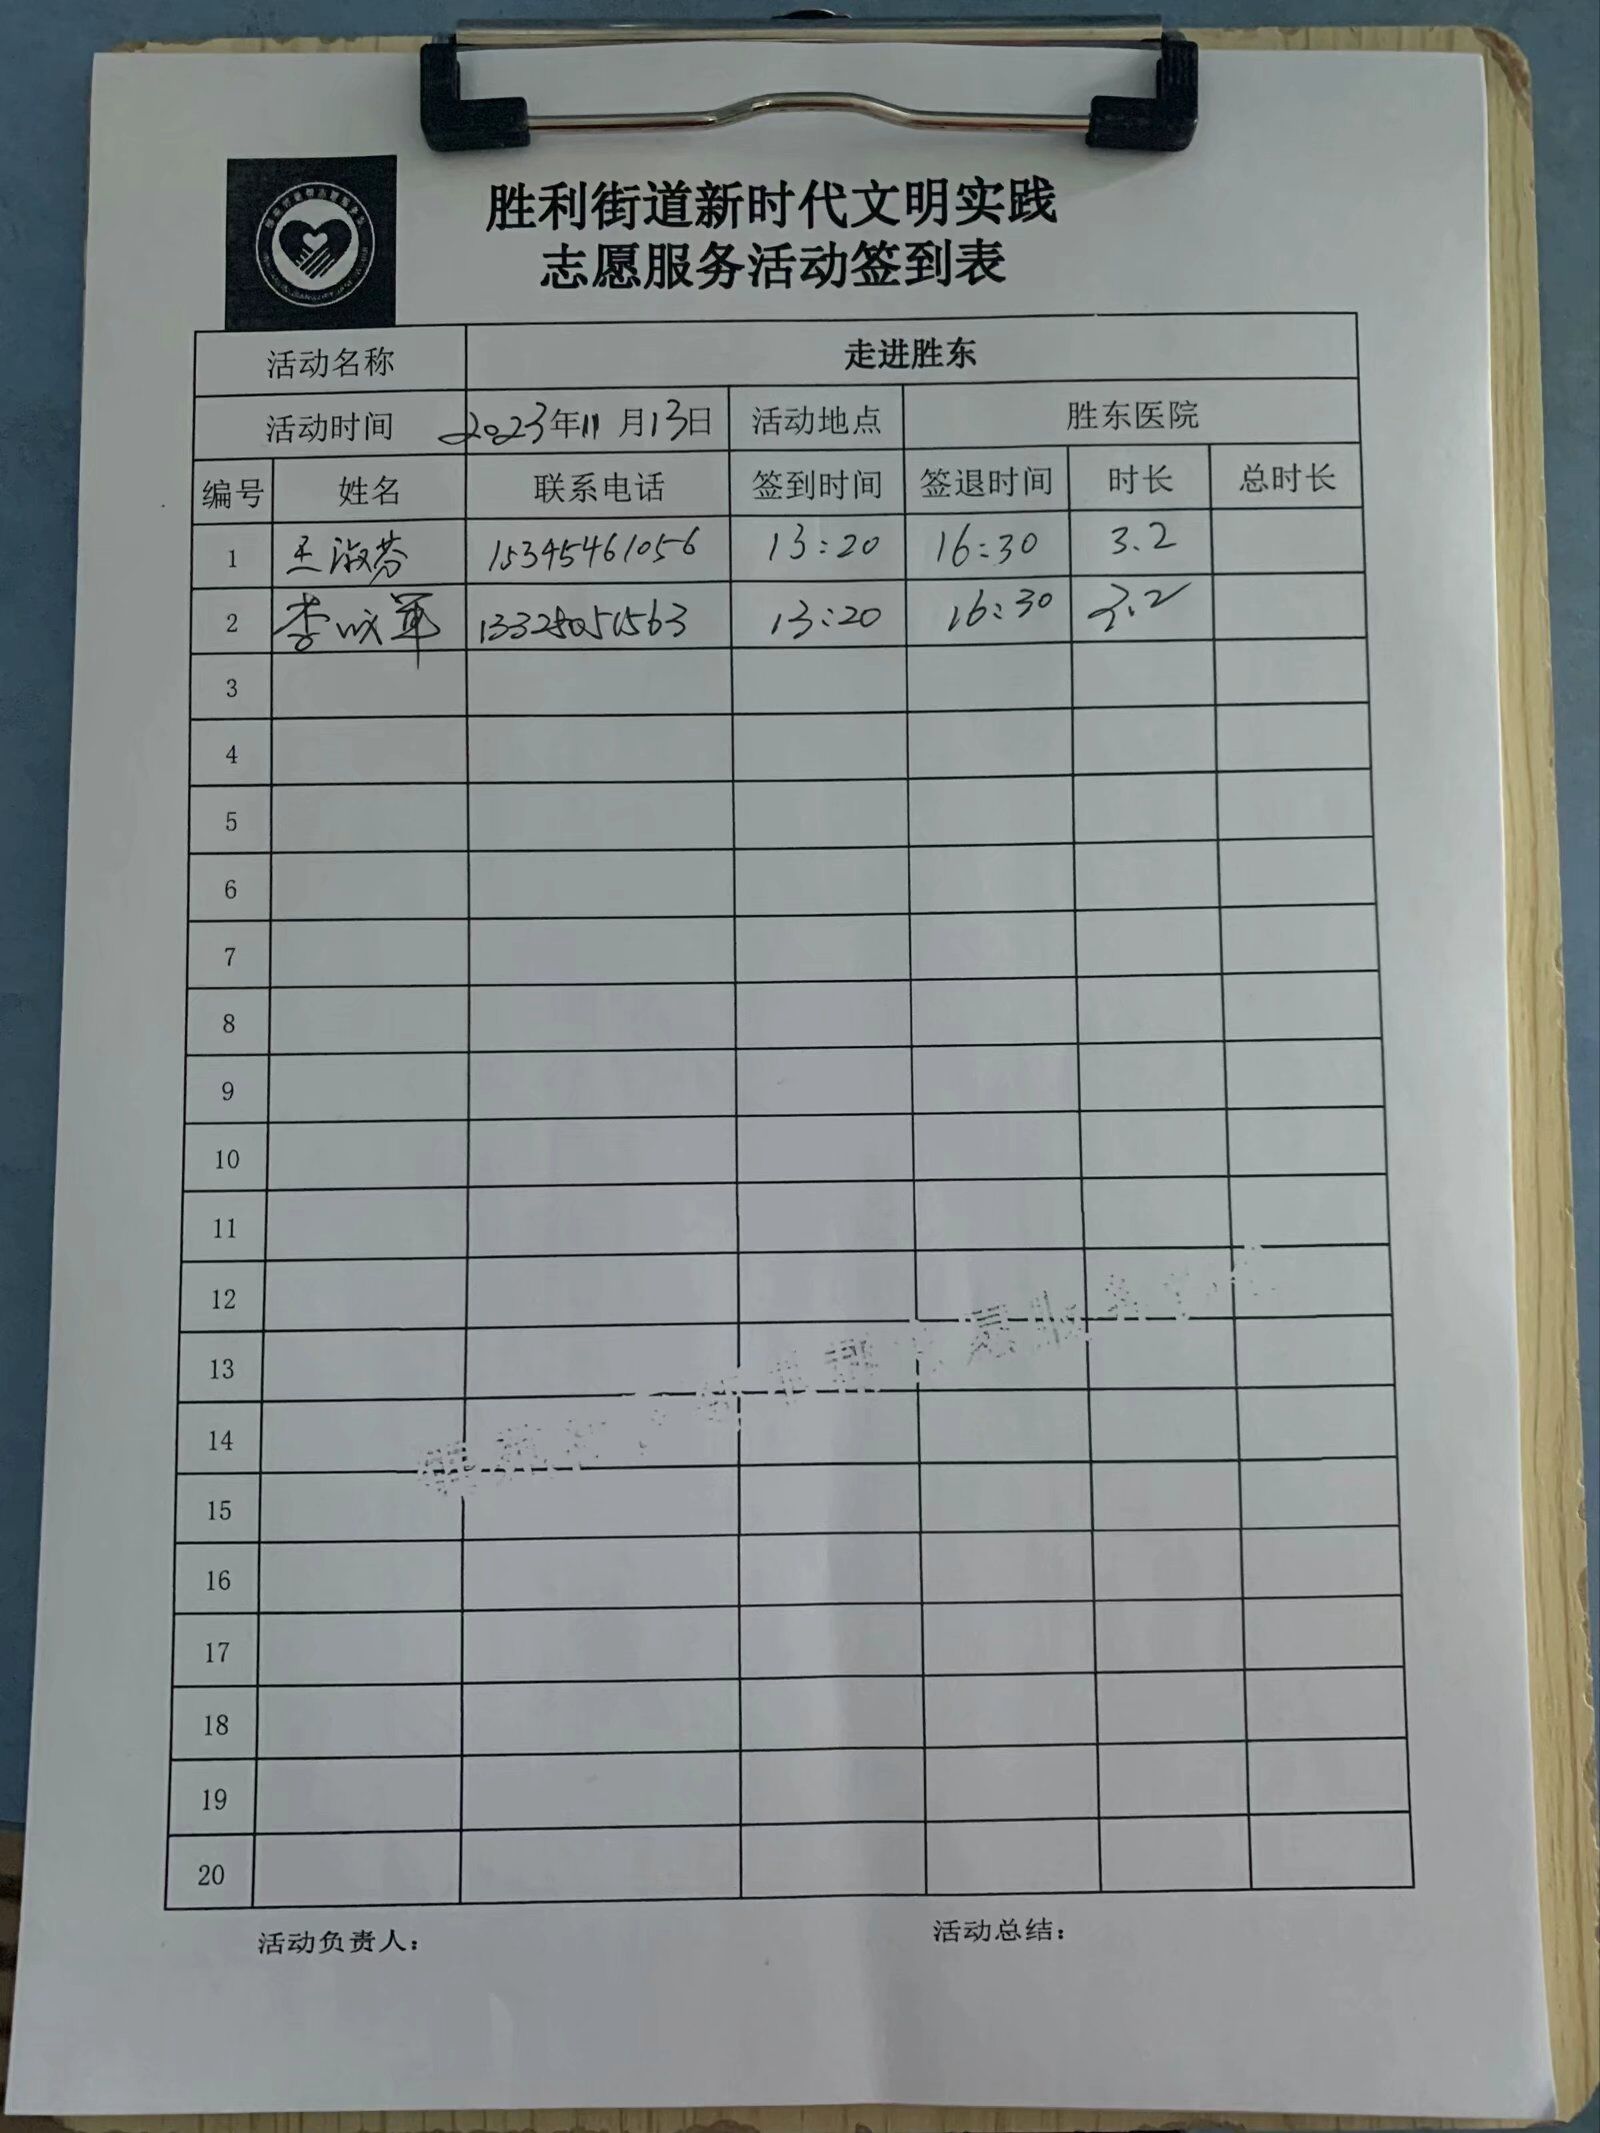 胜利街道新时代文明实践
志愿服务活动签到表
活动名称 走进胜东
活动时间 2023年11月13日 活动地点 胜东医院
编号 姓名 联系电话 签到时间 签退时间 时长 总时长
1 王淑芬 15345461056 13:20 16:30 3.2
2 李成军 13:20 16:30 3.2
3
4
5
6
7
8
9
10
11
12
13
14
15
16
17
18
19
20
活动负责人： 活动总结：